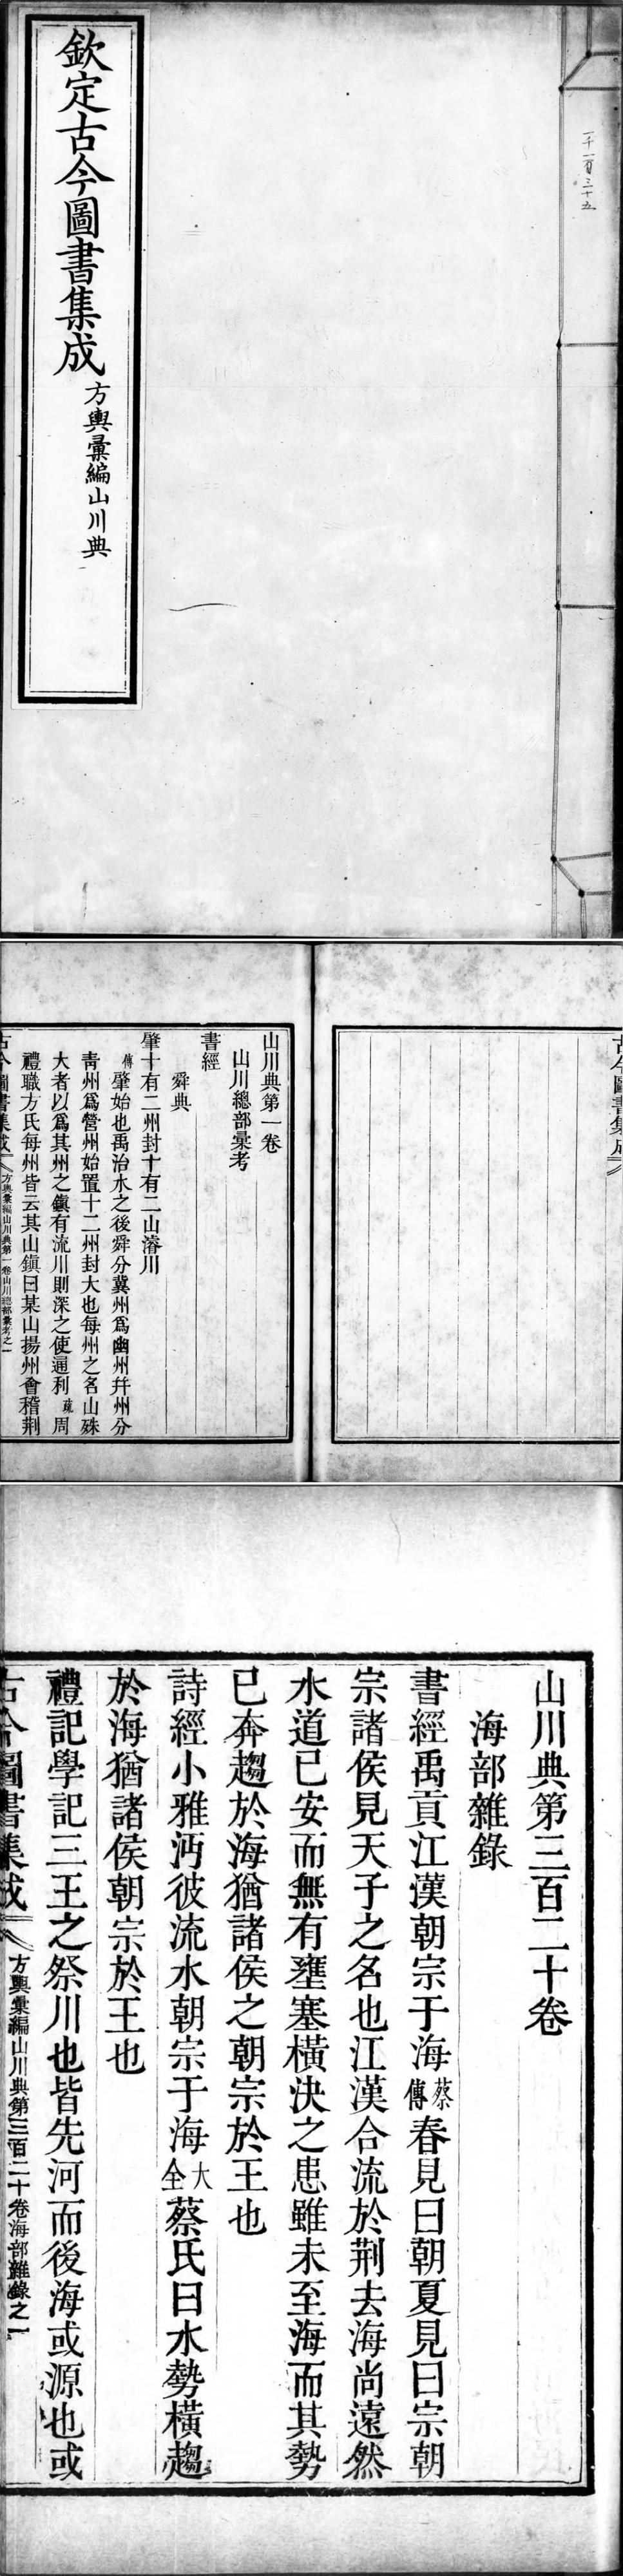 欽定古今圖書集成
方輿彙編山川典
一千一百三十五
古今圖書集成
山川典第一卷
山川總部彙考
書經
舜典
肇十有二州封十有二山濬川
傳肇始也禹治水之後舜分冀州爲幽州幷州分
靑州爲營州始置十二州封大也每州之名山殊
大者以爲其州之鎭有流川則深之使通利疏周
禮職方氏每州皆云其山鎭曰某山揚州會稽荆
古今圖書集成
方輿彙編山川典第一卷山川總部彙考之一
山川典第三百二十卷
海部雜錄
書經禹貢江漢朝宗于海蔡傳春見曰朝夏見曰宗朝
宗諸侯見天子之名也江漢合流於荆去海尚遠然
水道已安而無有壅塞橫決之患雖未至海而其勢
已奔趨於海猶諸侯之朝宗於王也
詩經小雅沔彼流水朝宗于海大全蔡氏曰水勢橫趨
於海猶諸侯朝宗於王也
禮記學記三王之祭川也皆先河而後海或源也或
古今圖書集成
方輿彙編山川典第三百二十卷海部雜錄之一